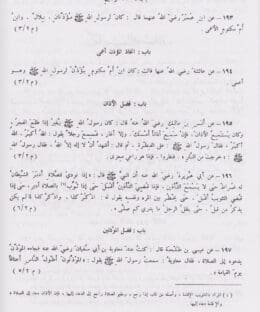 ١٩٣- عن ابن عمر رضي الله عنهما قال : كان لرسول الله ﷺ مؤذنان ، بلال ، وابن
أم مكتوم الأعمى . (م ٣/٢)
باب : اتخاذ المؤذن أعمى
١٩٤- عن عائشة رضي الله عنها قالت : كان ابن أم مكتوم يؤذن لرسول الله ﷺ وهو
أعمى . (م ٣/٢)
باب : فضل الأذان
١٩٥- عن أنس بن مالك رضي الله عنه قال : كان رسول الله ﷺ يغير إذا طلع الفجر ،
وكان يستمع الأذان ، فإن سمع أذانا أمسك ، وإلا أغار ، فسمع رجلا يقول : الله أكبر ، الله
أكبر ، فقال رسول الله ﷺ : على الفطرة ، ثم قال : أشهد أن لا إله إلا الله ، فقال رسول الله
ﷺ : خرجت من النار ، فنظروا ، فإذا هو راعي معزى .
١٩٦- عن أبي هريرة رضي الله عنه أن النبي ﷺ قال : إذا نودي للصلاة أدبر الشيطان
له ضراط حتى لا يسمع التأذين ، فإذا قضي التأذين أقبل حتى إذا ثوب(١) بالصلاة أدبر ، حتى إذا
قضي التثويب أقبل ، حتى يخطر بين المرء ونفسه ، يقول له : اذكر كذا ، واذكر كذا لما لم يكن
يذكر من قبل ، حتى يظل الرجل ما يدري كم صلى . (م ٦/٢)
باب : فضل المؤذنين
١٩٧- عن عيسى بن طلحة قال : كنت عند معاوية بن أبي سفيان رضي الله عنه فجاءه المؤذن
يدعوه إلى الصلاة ، فقال معاوية : سمعت رسول الله ﷺ يقول : المؤذنون أطول الناس أعناقا
يوم القيامة . (م ٥/٢)